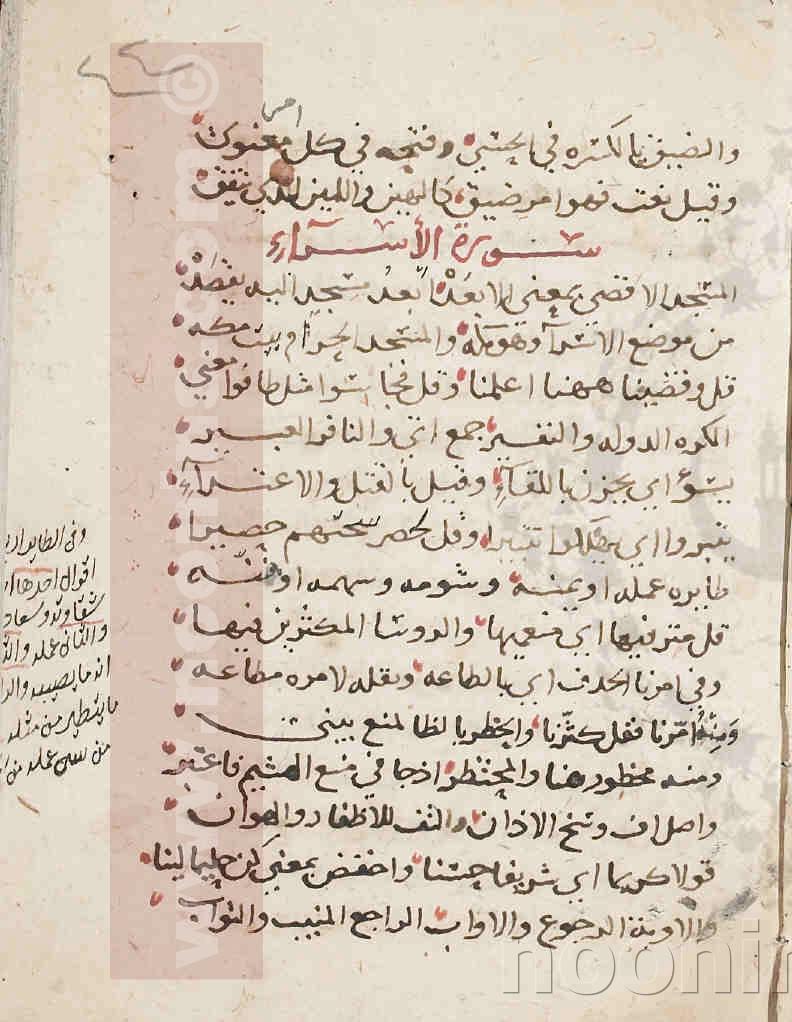 والضيق بالكسره في الحسّي وفتحه في كل معنوي
وقيل نعت فهو امر ضيق كالهين واللين الذي
سورة الأسراء
المسجد الاقصى بمعنى الابعد ابعد مسجد اليه يقصد
من موضع الاسرآ وهو مكه والمسجد الحرام بيت مكه
قل وقضينا ههنا اعلمنا وقل فجاسوا مثل طافوا معنى
الكره الدوله والنفير جمع اتي والنافر العسير
يسؤ اي يحزن باللقآء وقيل بالقتل والاعتدآء
يتبروا اي يهلكوا تتبيرا وقل لحصر سجنهم حصيرا
طايره عمله او يمنه وشومه وسهمه او
قل مترفيها اي منعميها والروسا المكثرين فيها
وفي امرنا الحذف اي بالطاعه ونقله لامره مطاعه
ومنه أمّرنا فقل كثّرنا والحظر بالظا لمنع بينى
ومنه محظور هنا والمحتظر اذ جا في منع الهشيم فاعتبر
واصل اف وسخ الاذان والتف للاظفار والهوان
قولا كريما اي شريفا حسنا واخفض بمعنى كن حليما لينا
والاوبة الرجوع والاواب الراجع المنيب والتواب
وفي الطاير
اقوال احدها
شقاوته وسعاد
والثاني عمله
انه ما يصيبه
ما يتطير من مثله
من سىء عمله
www.noorlib.com ©